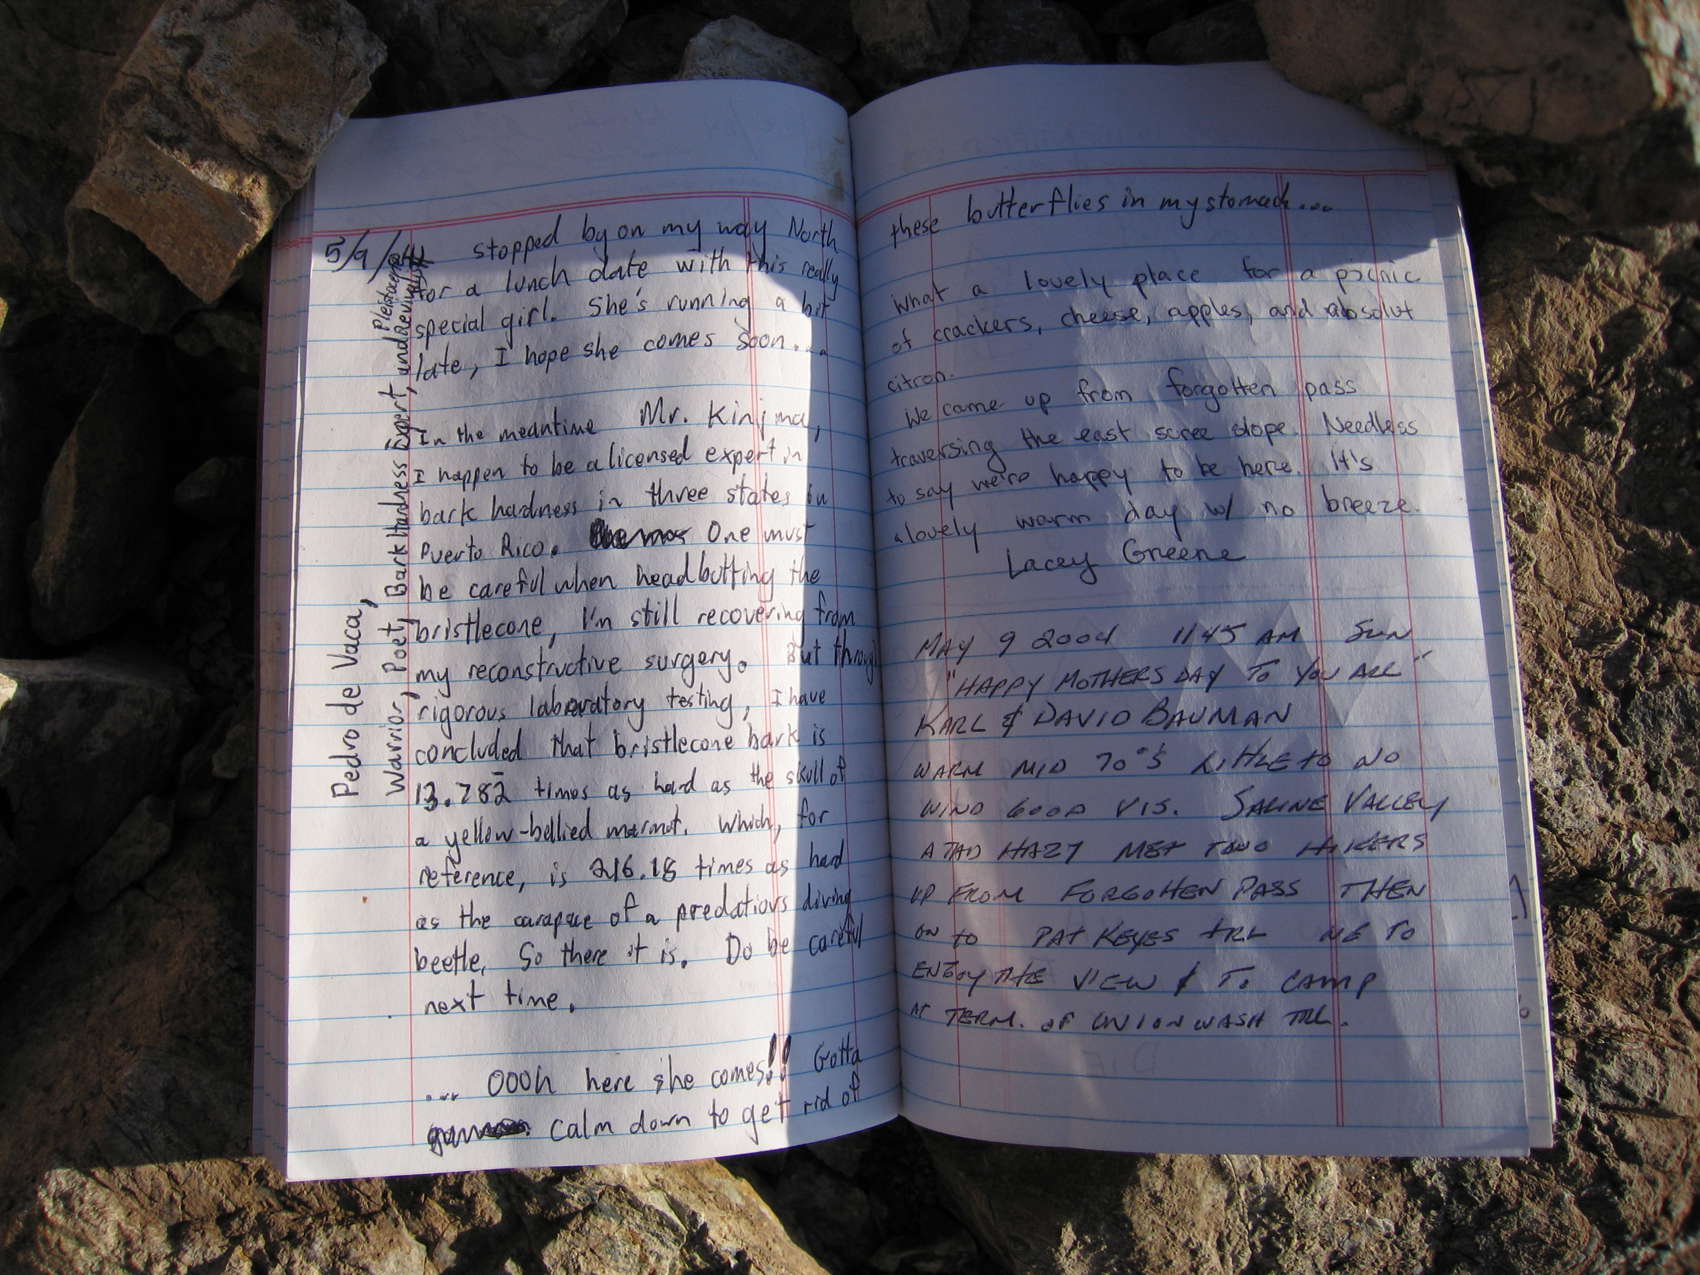 5/9/04 stopped by on my way North
for a lunch date with this really
special girl. She's running a bit
late, I hope she comes soon...
In the meantime Mr. Kinjma,
I happen to be a licensed expert in
bark hardness in three states in
Puerto Rico. One must
be careful when headbutting the
bristlecone, I'm still recovering from
my reconstructive surgery. But through
rigorous laboratory testing, I have
concluded that bristlecone bark is
13.782 times as hard as the skull of
a yellow-bellied marmot. Which, for
reference, is 216.18 times as hard
as the carapace of a predatious diving
beetle. So there it is. Do be careful
next time.
... OOOh here she comes!! Gotta
calm down to get rid of
Pedro de Vaca,
Warrior, Poet, Bark Hardness Expert, and Revivalist
these butterflies in my stomach...
What a lovely place for a picnic
of crackers, cheese, apples, and absolut
citron.
We came up from forgotten pass
traversing the east scree slope. Needless
to say we're happy to be here. It's
a lovely warm day w/ no breeze.
Lacey Greene
MAY 9 2004 1145 AM SUN
"HAPPY MOTHERS DAY TO YOU ALL"
KARL & DAVID BAUMAN
WARM MID 70°'S LITTLE TO NO
WIND GOOD VIS. SALINE VALLEY
A TAD HAZY MET TWO HIKERS
UP FROM FORGOTTEN PASS THEN
ON TO PAT KEYES TRL WE TO
ENJOY THE VIEW & TO CAMP
AT TERM. OF UNION WASH TRL.